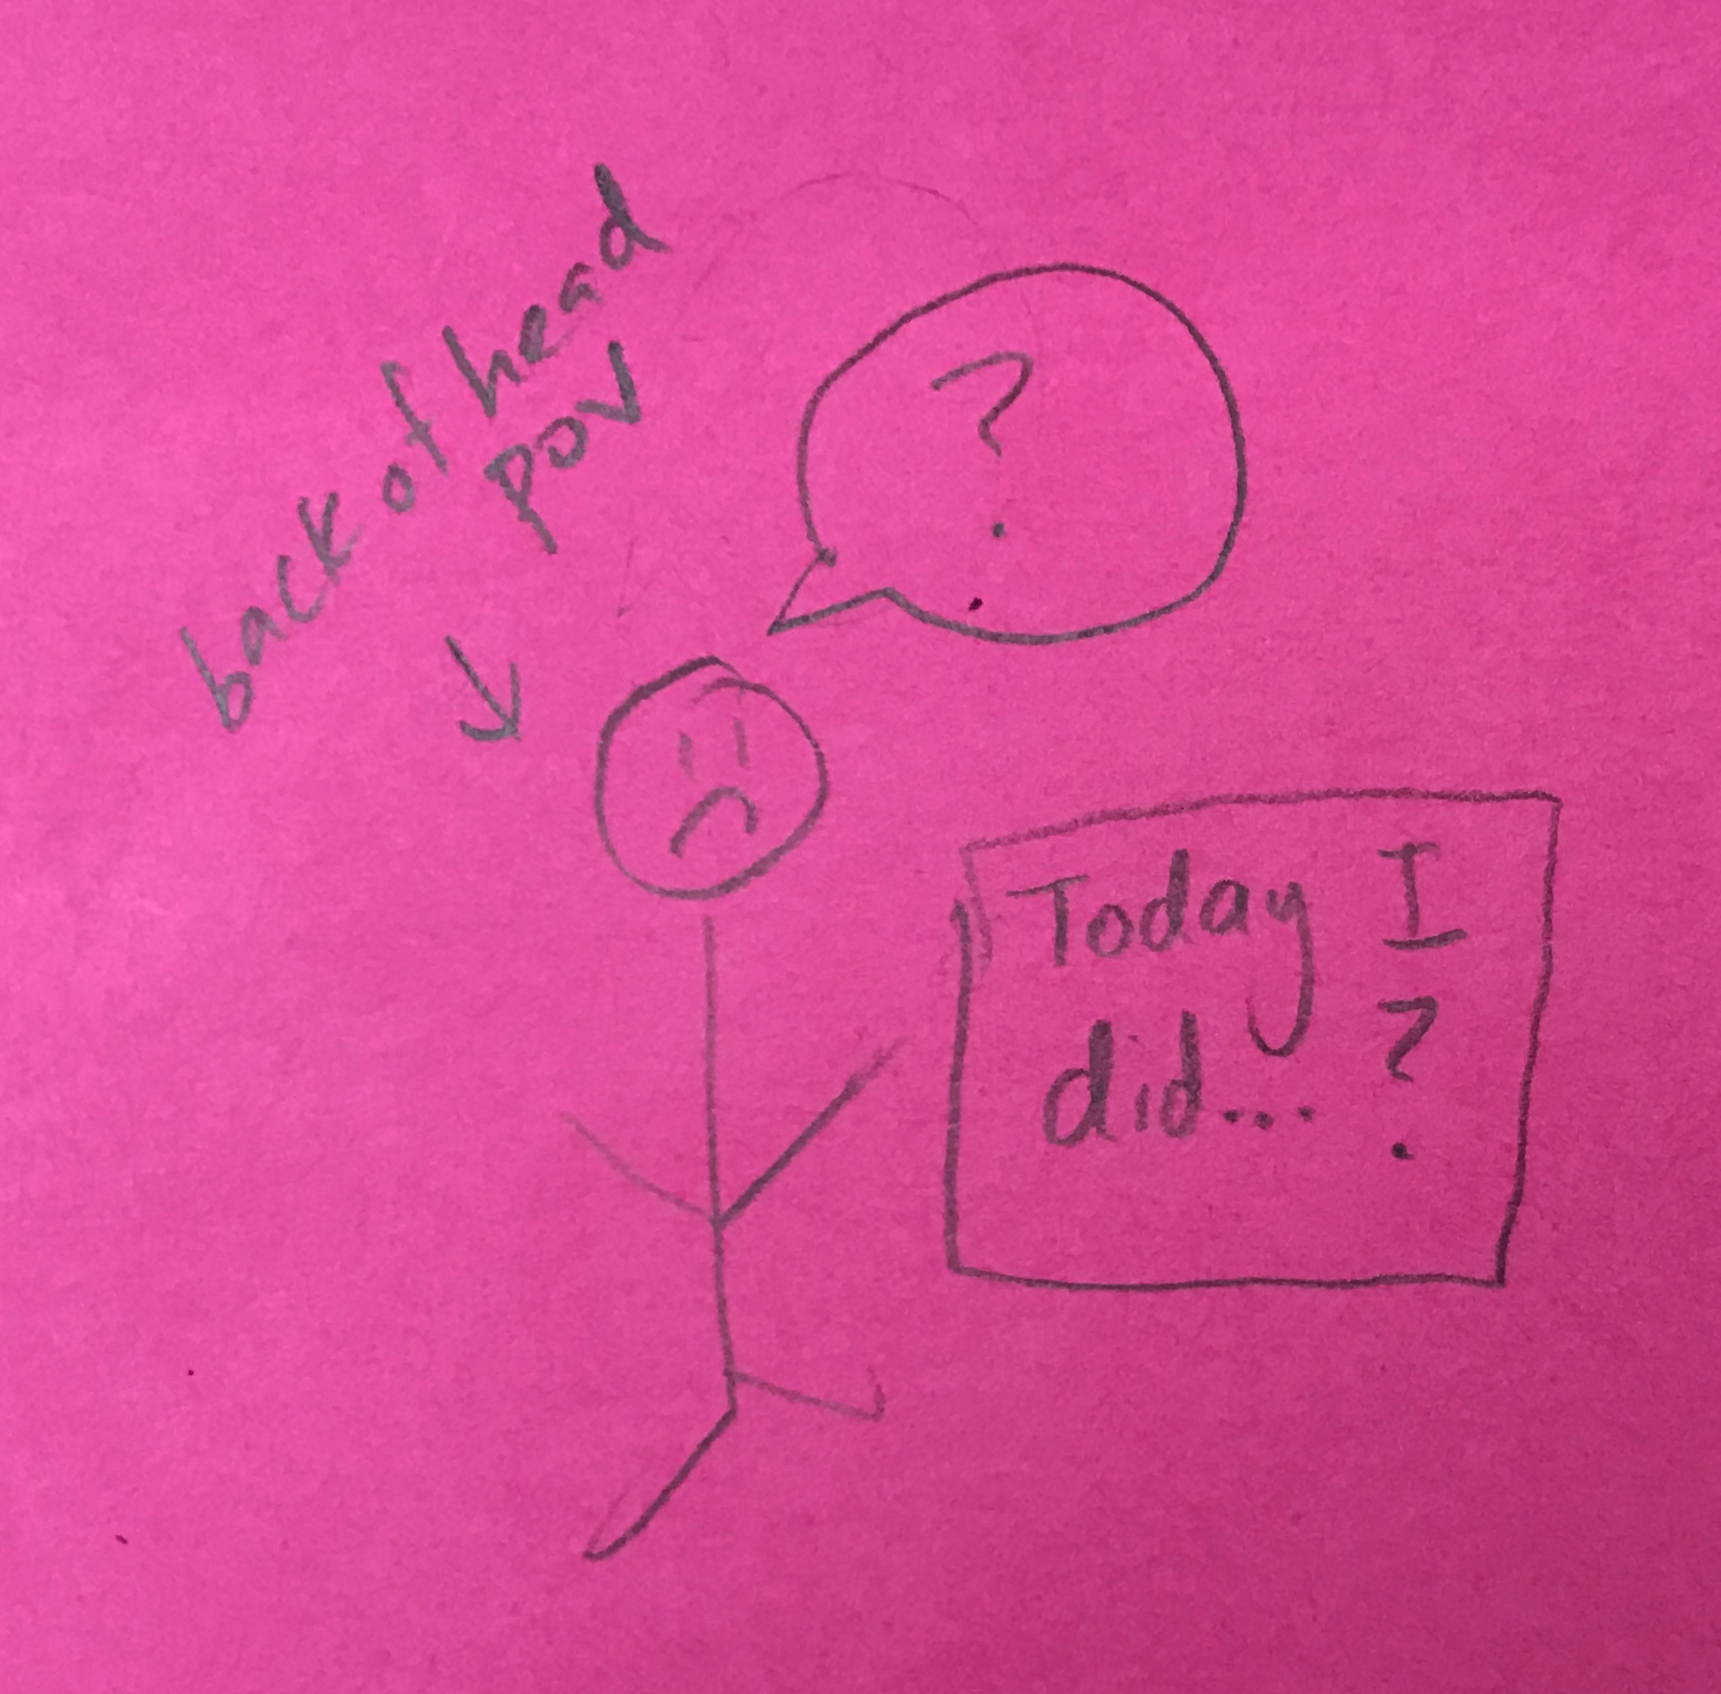 back of head
pov
?
Today I
did... ?